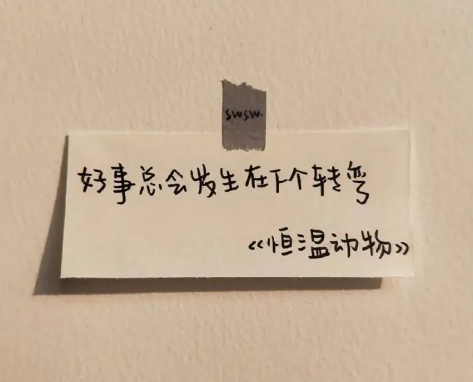 swsw.
好事总会发生在下个转弯
《恒温动物》